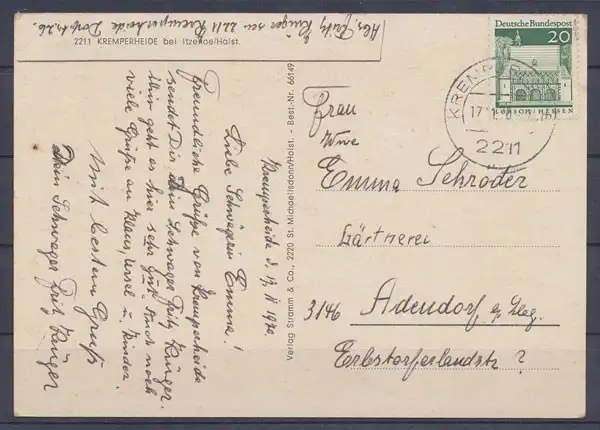 Abs. Fritz Krüger sen 2211 Kremperheide Dorfstr. 26.
2211 KREMPERHEIDE bei Itzehoe/Holst.
Kremperheide d. 17. II 1970.
Liebe Schwägerin Emma!
Freundliche Grüße von Kremperheide
sendet Dir Dein Schwager Fritz Krüger.
Ihm geht es hier sehr gut. Auch noch
viele Grüße an Klaus, Ursel u. Kinder.
Mit bestem Gruß
Dein Schwager Fritz Krüger
Verlag Stramm & Co., 2220 St. Michaelisdonn/Holst. - Best.-Nr. 66149
Deutsche Bundespost
20
LORSCH/HESSEN
2211
Frau
Wwe
Emma Schröder
Gärtnerei
3146 Adendorf
Erbstorferlandstr ?